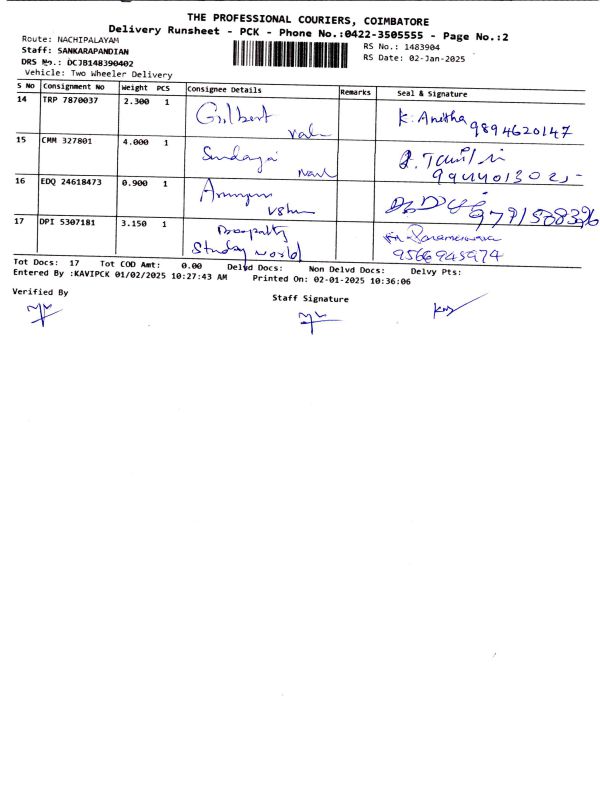 THE PROFESSIONAL COURIERS, COIMBATORE
Delivery Runsheet - PCK - Phone No.:0422-3505555 - Page No.:2
Route: NACHIPALAYAM
RS No.: 1483904
Staff: SANKARAPANDIAN
RS Date: 02-Jan-2025
DRS No.: DCJB148390402
Vehicle: Two Wheeler Delivery
S No Consignment No Weight PCS Consignee Details Remarks Seal & Signature
14 TRP 7870037 2.300 1 Gilbert K. Anitha 9894620147
15 CMM 327801 4.000 1
16 EDQ 24618473 0.900 1
17 DPI 5307181 3.150 1
9566945974
Tot Docs: 17 Tot COD Amt: 0.00 Delvd Docs: Non Delvd Docs: Delvy Pts:
Entered By :KAVIPCK 01/02/2025 10:27:43 AM Printed On: 02-01-2025 10:36:06
Verified By
Staff Signature